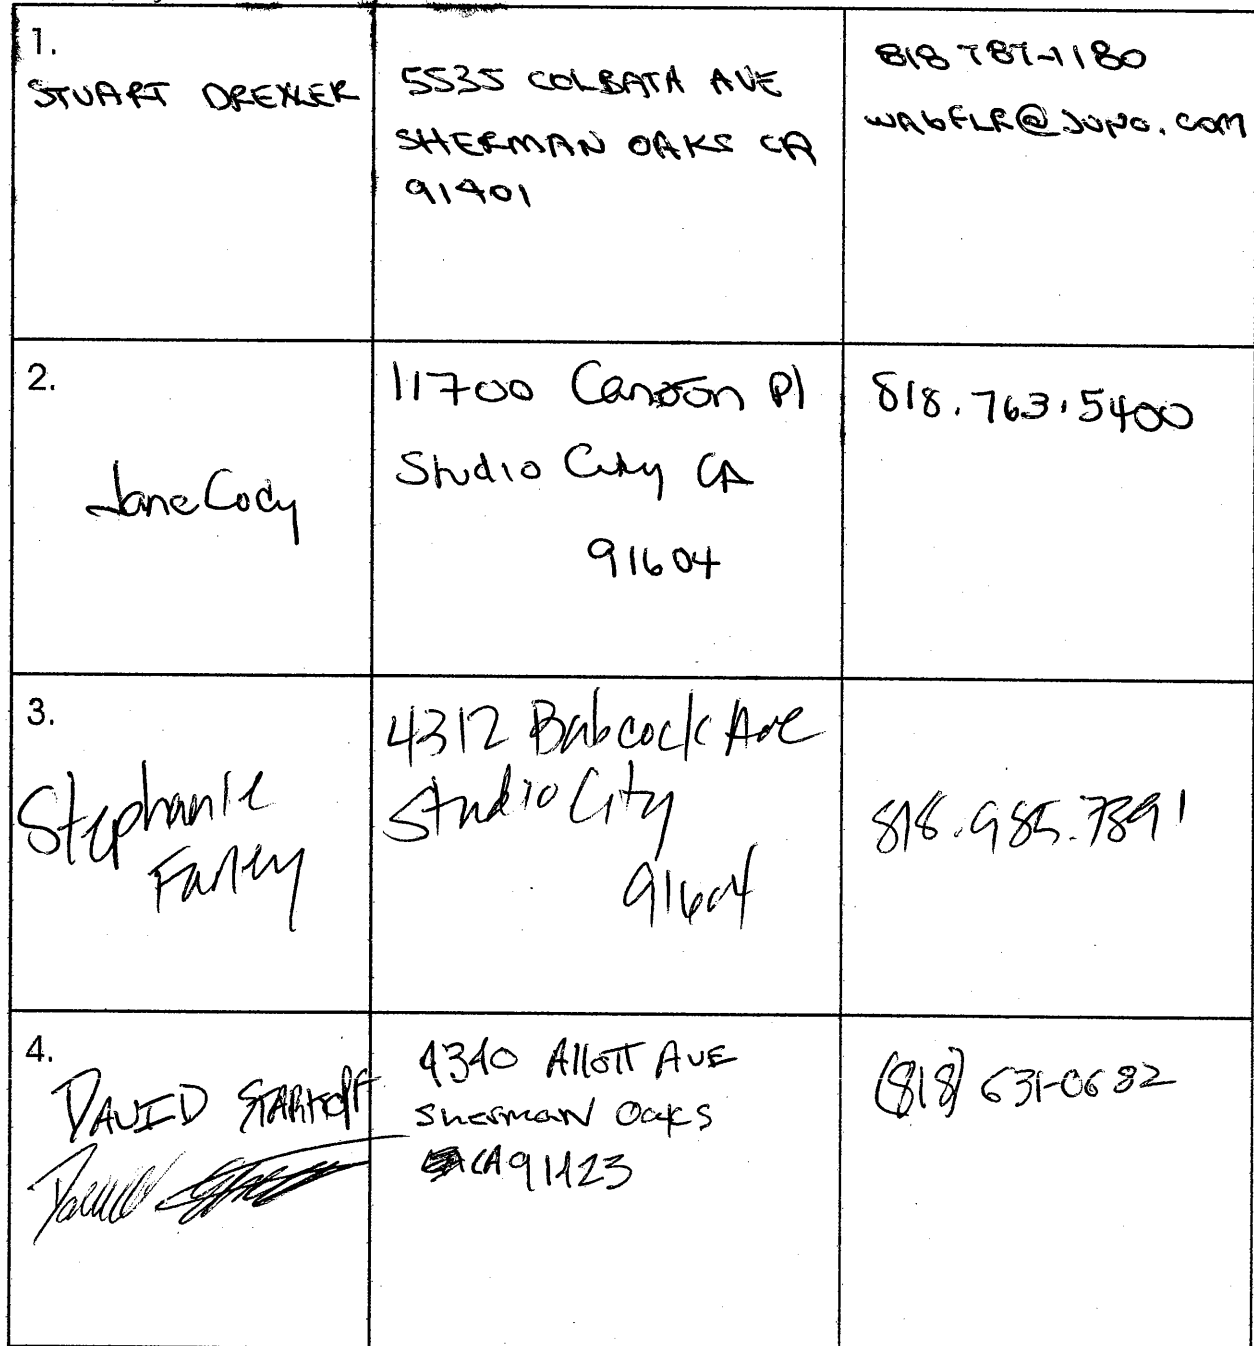 1.
STUART DREXLER
5535 COLBATH AVE
SHERMAN OAKS CA
91401
818 787-1180
WA6FLR@JUNO.COM
2.
Jane Cody
11700 Canton Pl
Studio City CA
91604
818.763.5400
3.
Stephanie
Farley
4312 Babcock Ave
Studio City
91604
818.985.7891
4.
DAVID
4340 Allott AVE
Sherman Oaks
CA 91423
(818) 631-0682